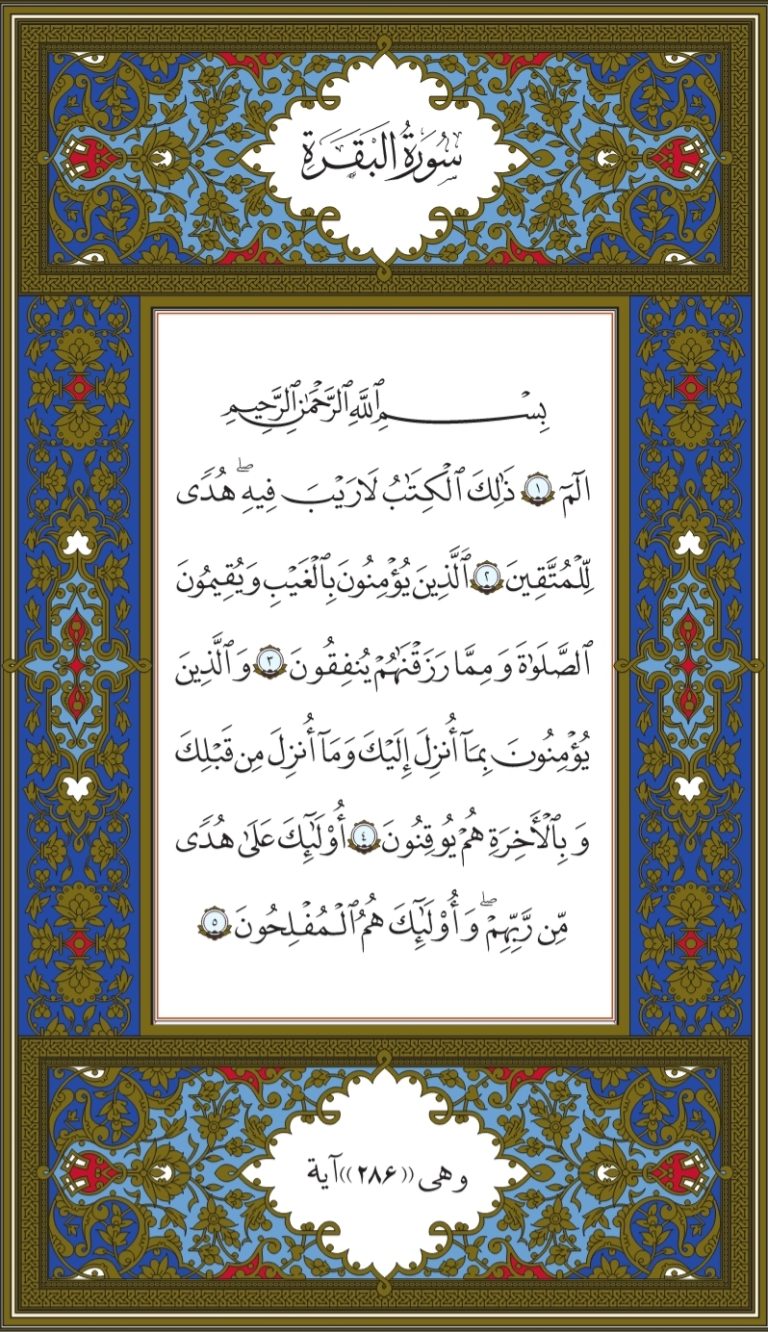 سُورَةُ البَقَرَةِ
بِسْمِ ٱللَّهِ ٱلرَّحْمَٰنِ ٱلرَّحِيمِ
الٓمٓ ١ ذَٰلِكَ ٱلْكِتَٰبُ لَا رَيْبَ فِيهِ ۖ هُدًى
لِّلْمُتَّقِينَ ٢ ٱلَّذِينَ يُؤْمِنُونَ بِٱلْغَيْبِ وَيُقِيمُونَ
ٱلصَّلَوٰةَ وَمِمَّا رَزَقْنَٰهُمْ يُنفِقُونَ ٣ وَٱلَّذِينَ
يُؤْمِنُونَ بِمَآ أُنزِلَ إِلَيْكَ وَمَآ أُنزِلَ مِن قَبْلِكَ
وَبِٱلْأَخِرَةِ هُمْ يُوقِنُونَ ٤ أُوْلَٰٓئِكَ عَلَىٰ هُدًى
مِّن رَّبِّهِمْ ۖ وَأُوْلَٰٓئِكَ هُمُ ٱلْمُفْلِحُونَ ٥
وهی ((۲۸۶)) آية